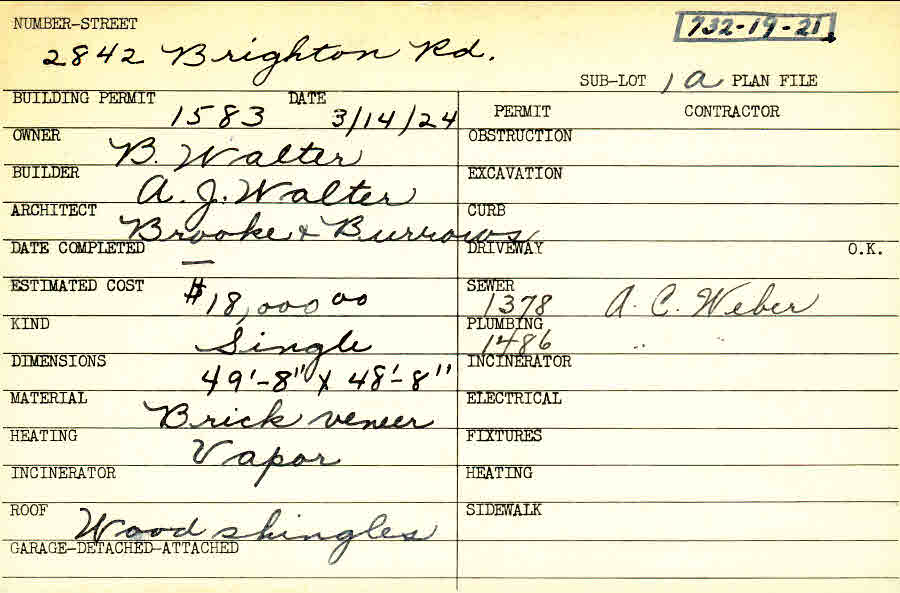 NUMBER-STREET
732-19-21
2842 Brighton Rd.
SUB-LOT 1a PLAN FILE
BUILDING PERMIT 1583 DATE 3/14/24
OWNER B. Walter
BUILDER A. J. Walter
ARCHITECT Brooke & Burrows
DATE COMPLETED —
ESTIMATED COST $18,000 00
KIND Single
DIMENSIONS 49'-8" X 48'-8"
MATERIAL Brick veneer
HEATING Vapor
INCINERATOR
ROOF Wood shingles
GARAGE-DETACHED-ATTACHED
PERMIT CONTRACTOR
OBSTRUCTION
EXCAVATION
CURB
DRIVEWAY O.K.
SEWER 1378 A. C. Weber
PLUMBING 1486 " "
INCINERATOR
ELECTRICAL
FIXTURES
HEATING
SIDEWALK